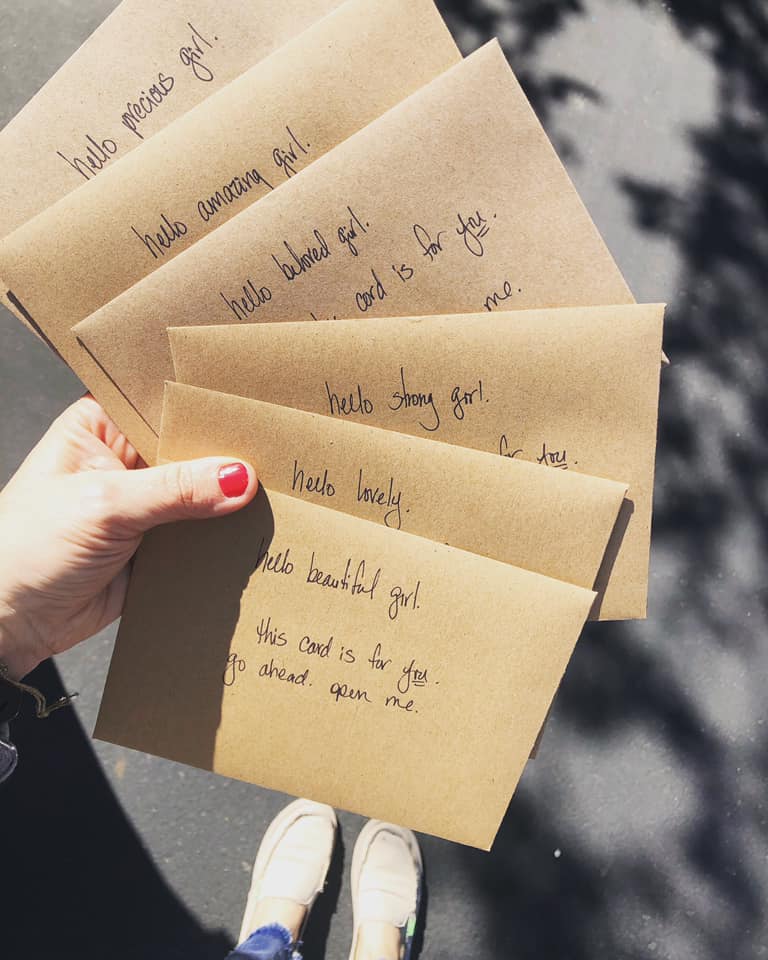 hello precious girl.
hello amazing girl.
hello beloved girl.
card is for you.
me.
hello strong girl.
for you.
hello lovely.
hello beautiful girl.
this card is for you.
go ahead. open me.